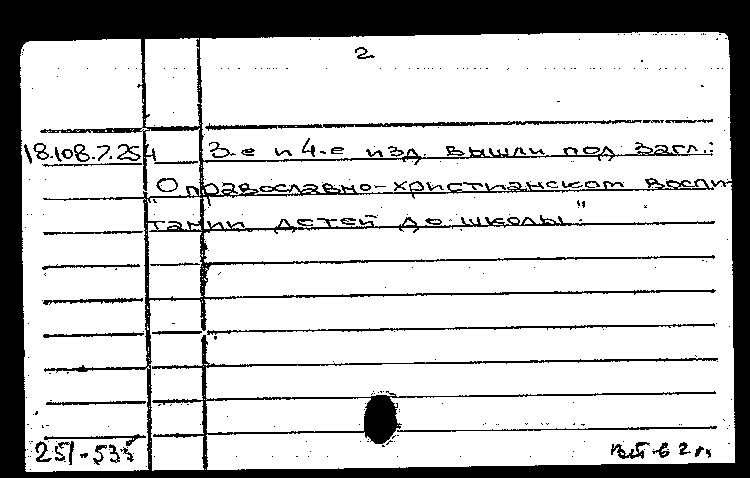 2
18.108.7.254 3-е и 4-е изд. вышли под загл.:
"О православно-христианском воспи-
тании детей до школы".
251-535